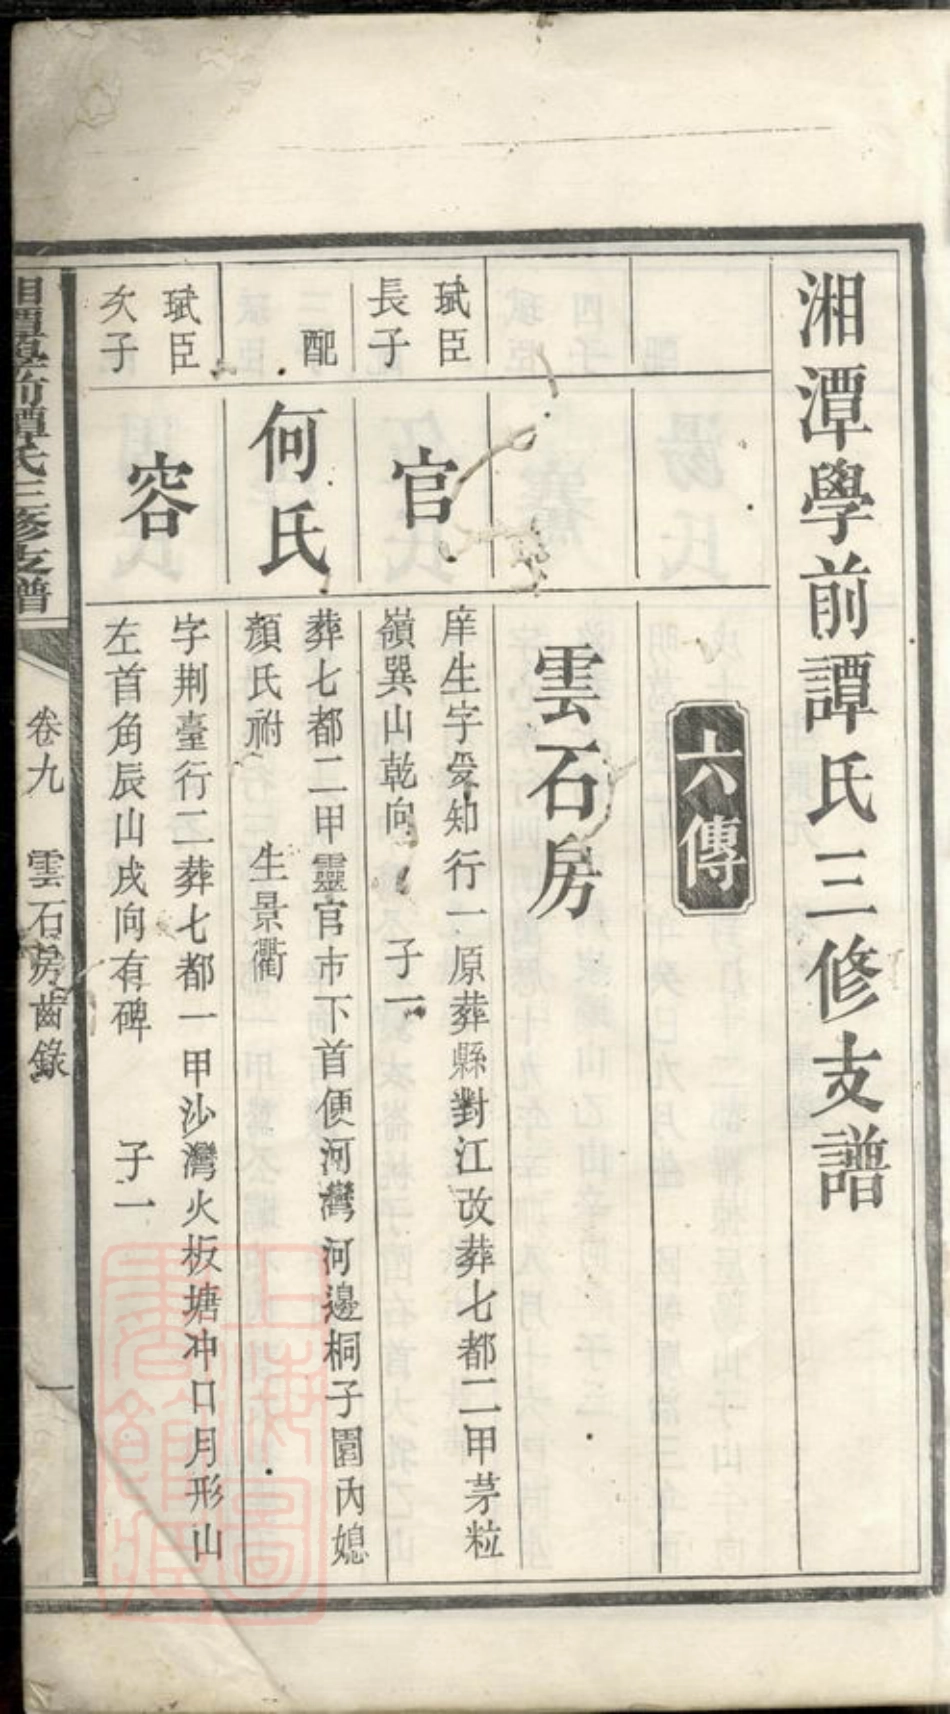 湘潭學前譚氏三修支譜
六傳
雲石房
珷臣
長子
官
庠生字受知行一原葬縣對江改葬七都二甲茅粒
嶺巽山乾向 子一
配
何氏
葬七都二甲靈官市下首便河灣河邊桐子園內媳
顏氏祔 生景衢
珷臣
次子
容
字荆臺行二葬七都一甲沙灣火板塘冲口月形山
左首角辰山戌向有碑 子一
湘潭學前譚氏三修支譜
卷九 雲石房齒錄
一
上海圖書館藏